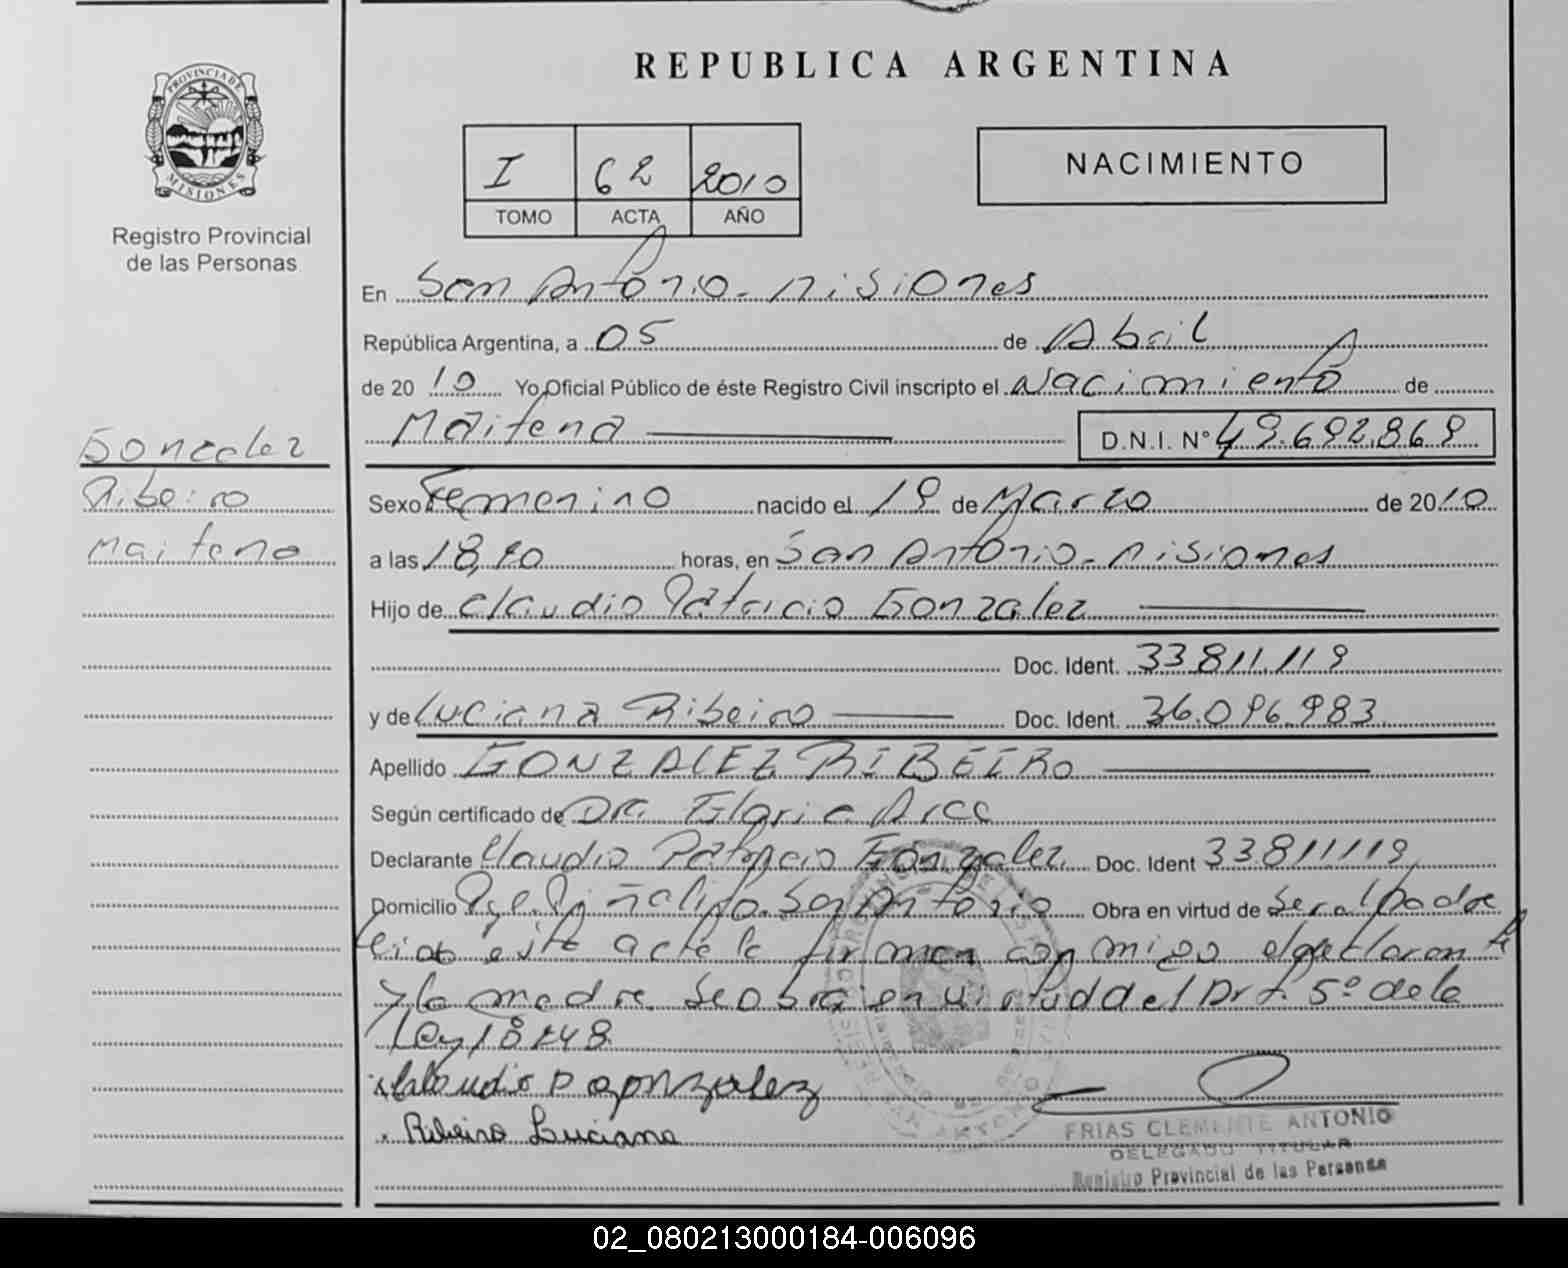 REPUBLICA ARGENTINA
PROVINCIA DE
MISIONES
Registro Provincial
de las Personas
I 62 2010
TOMO ACTA AÑO
NACIMIENTO
En San Antonio - Misiones
República Argentina, a 05 de Abril
de 2010 Yo Oficial Público de éste Registro Civil inscripto el Nacimiento de
Maitena D.N.I. N° 49.692.869
Gonzalez
Ribeiro
Maitena
Sexo Femenino nacido el 19 de Marzo de 2010
a las horas, en San Antonio - Misiones
Hijo de Claudio Patricio Gonzalez
Doc. Ident. 33811119
y de Luciana Ribeiro Doc. Ident. 36.096.983
Apellido GONZALEZ RIBEIRO
Según certificado de Dra. Gloria Arce
Declarante Claudio Patricio Gonzalez Doc. Ident 33811119
Domicilio San Antonio Obra en virtud de Ser el padre
este acta la firman conmigo el declarante
y la madre Se obra en virtud del Art. 5° de la
Ley 18248
Claudio P Gonzalez
Ribeiro Luciana
FRIAS CLEMENTE ANTONIO
DELEGADO TITULAR
Registro Provincial de las Personas
02_080213000184-006096